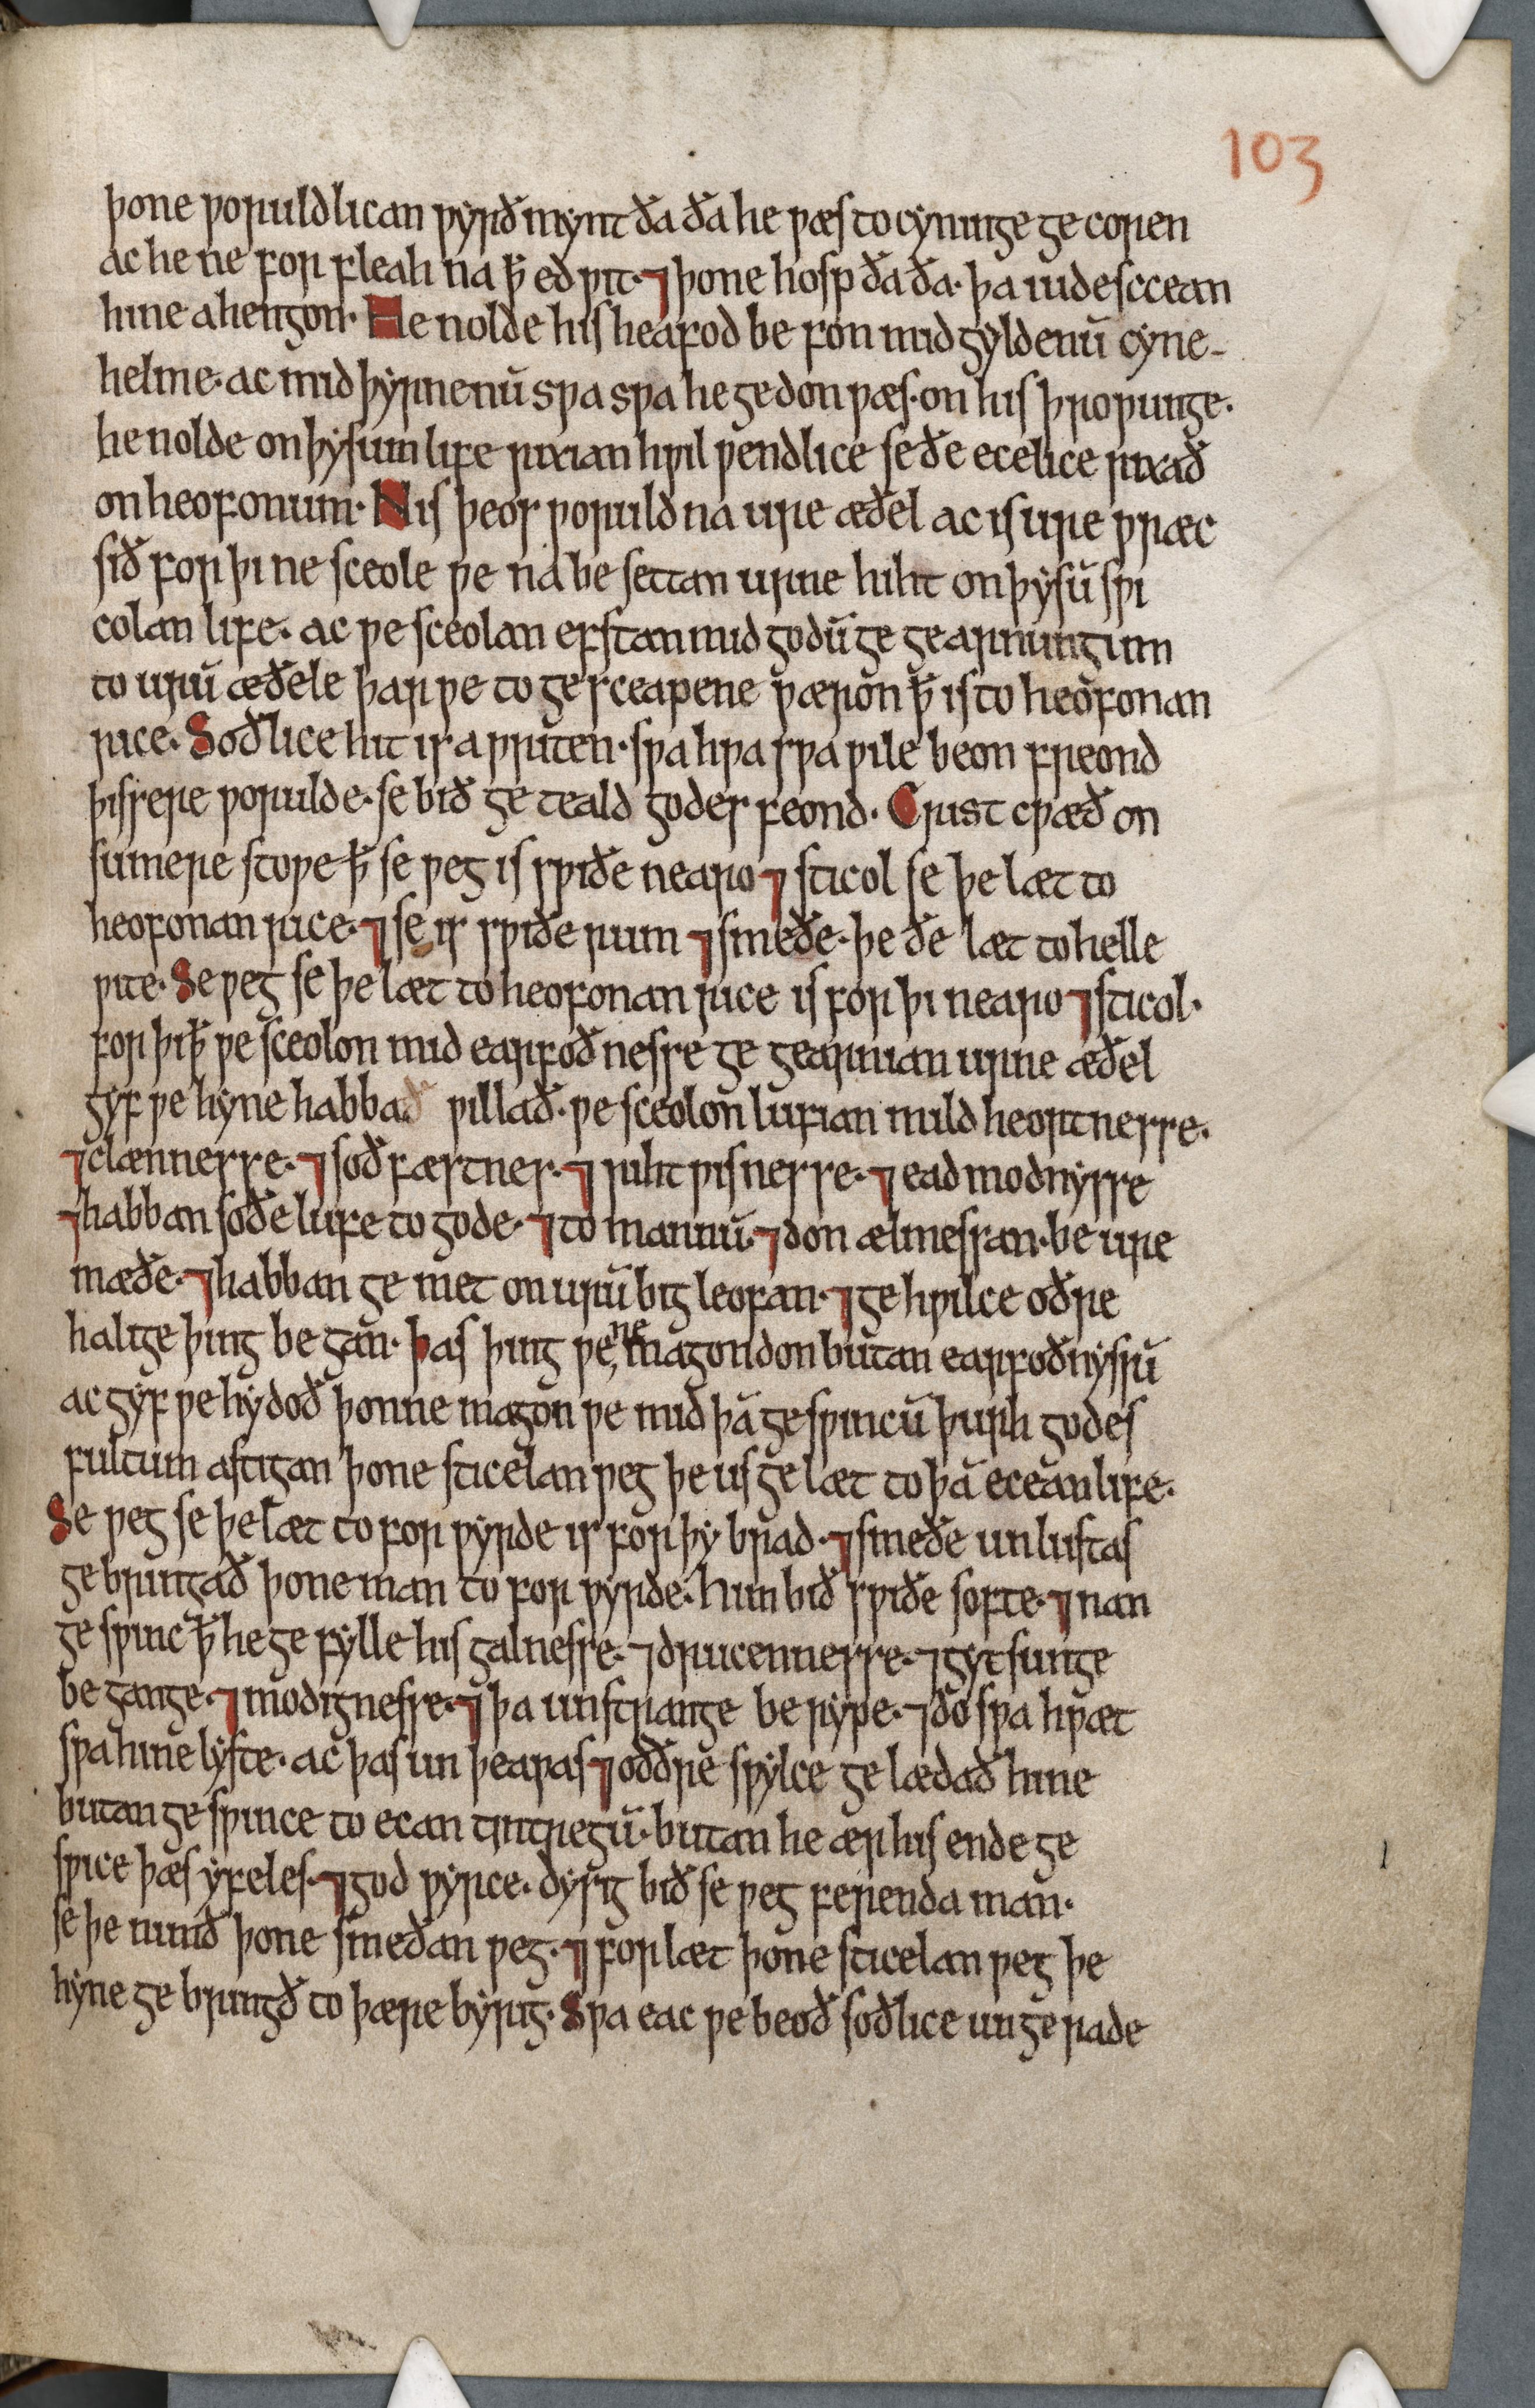 103
þone ƿoruldlican ƿẏrðmẏnt ða ða he ƿæs to cẏninge ge coren
ac he ne for fleah na ꝥ edƿit· ⁊ þone hosp ða ða· þa iudesccean
hine ahengon· He nolde his heafod be fon mid gẏldenū cẏne-
helme· ac mid þẏrnenū sƿa sƿa he gedon ƿæs· on his þroƿunge·
he nolde on þẏsum life rixian hƿilƿendlice se ðe ecelice rixað
on heofonum· Nis þeos ƿoruld na ure æðel ac is ure ƿræc
sið for þi ne sceole ƿe na be settan urne hiht on þẏsū sƿi
colan life· ac ƿe sceolan efstan mid godū ge gearnungum
to urū æðele þar ƿe to gesceapene ƿæron ꝥ is to heofonan
rice· Soðlice hit is aƿriten· sƿa hƿa sƿa ƿile beon freond
þissere ƿorulde· se bið ge teald godes feond· Crist cƿæð on
sumere stoƿe ꝥ se ƿeg is sƿiðe nearo ⁊ sticol se þe læt to
heofonan rice· ⁊ se is sƿiðe rum ⁊ smeðe· þe ðe læt to helle
ƿite· Se ƿeg se þe læt to heofonan rice is for þi nearo ⁊ sticol·
for þi ꝥ ƿe sceolon mid earfoðnesse ge gearnian urne æðel
gẏf ƿe hẏne habbað ƿillað· ƿe sceolon lufian mildheortnesse·
⁊ clænnesse· ⁊ soðfæstnes· ⁊ rihtƿisnesse· ⁊ eadmodnẏsse
⁊ habban soðe lufe to gode· ⁊ to mannū· ⁊ don ælmessan· be ure
mæðe· ⁊ habban ge met on urū bigleofan· ⁊ ge hƿilce oðre
halige þing be gan· Þas þing ƿe, ne magon don butan earfoðnẏssū
ac gẏf ƿe hẏ doð þonne magon ƿe mid þā gesƿincū þurh godes
fultum astigan þone sticelan ƿeg þe us ge læt to þā ecean life·
Se ƿeg se þe læt to for ƿẏrde is for þẏ brad· ⁊ smeðe unlustas
ge bringað þone man to for ƿẏrde· him bið sƿiðe softe· ⁊ nan
ge sƿinc ꝥ he ge fẏlle his galnesse· ⁊ druncennesse· ⁊ gẏtsunge
be gange· ⁊ modignesse· ⁊ þa unstrange be rẏpe· ⁊ dō sƿa hƿæt
sƿa hine lẏste· ac þas un þeaƿas ⁊ oððre sƿẏlce ge lædað hine
butan ge sƿince to ecan tintregū· butan he ær his ende ge
sƿice þæs ẏfeles· ⁊ god ƿẏrce· dẏsig bið se ƿeg ferenda man·
se þe nimð þone smeðan ƿeg· ⁊ forlæt þone sticelan ƿeg þe
hẏne ge bringð to þære bẏrig· Sƿa eac ƿe beoð soðlice ungerade